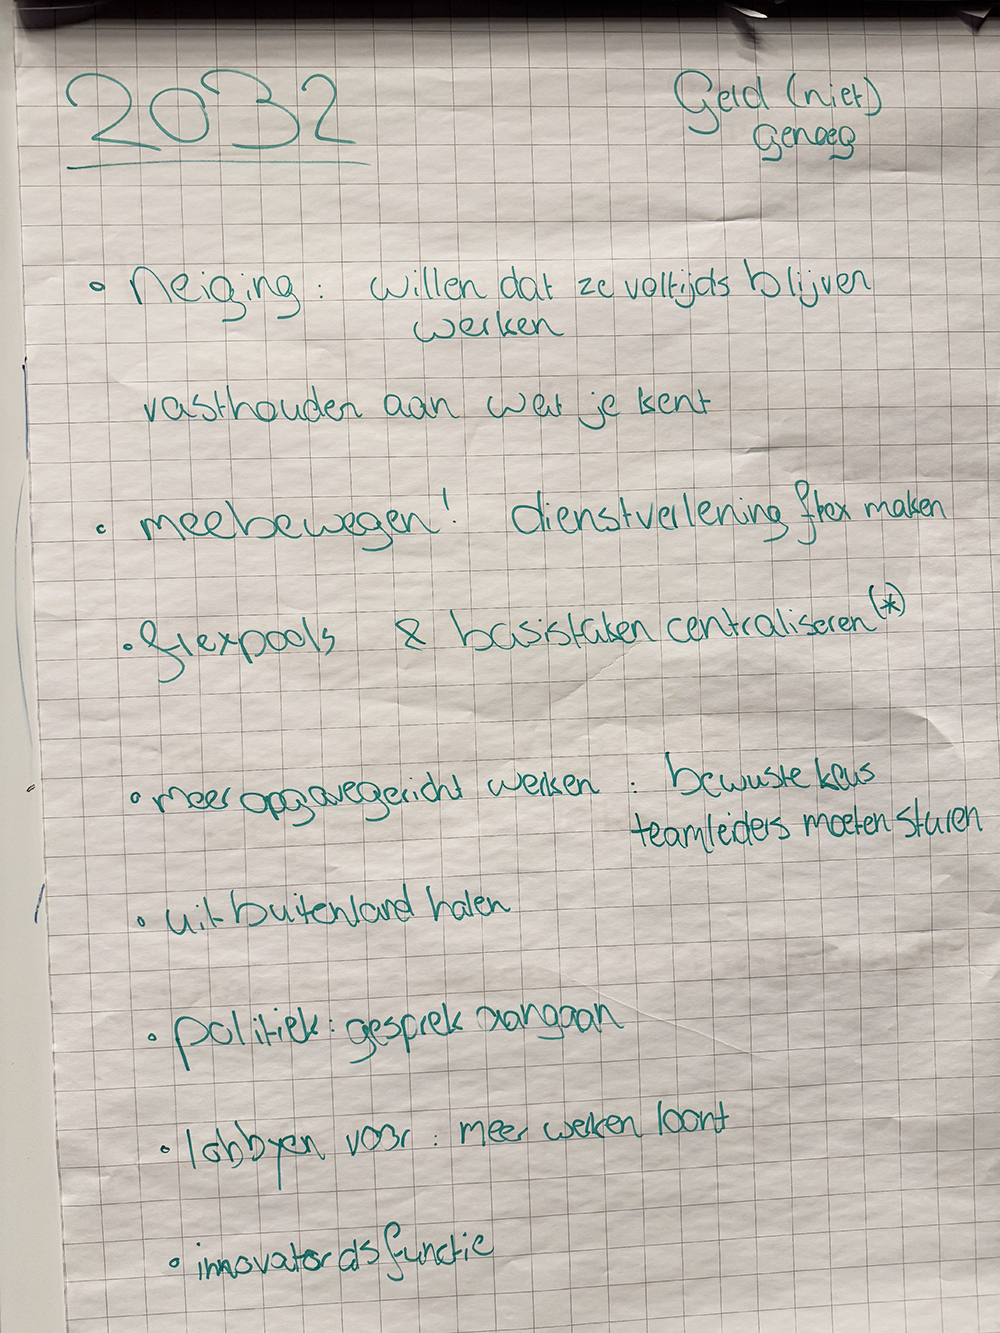 2032
Geld (niet)
genoeg
• Neiging: willen dat ze voltijds blijven
werken
vasthouden aan wat je kent
• meebewegen! dienstverlening flex maken
• flexpools & basistaken centraliseren (*)
• meer opgavegericht werken: bewuste keus
teamleiders moeten sturen
• uit buitenland halen
• politiek: gesprek aangaan
• lobbyen voor: meer werken loont
• innovator als functie